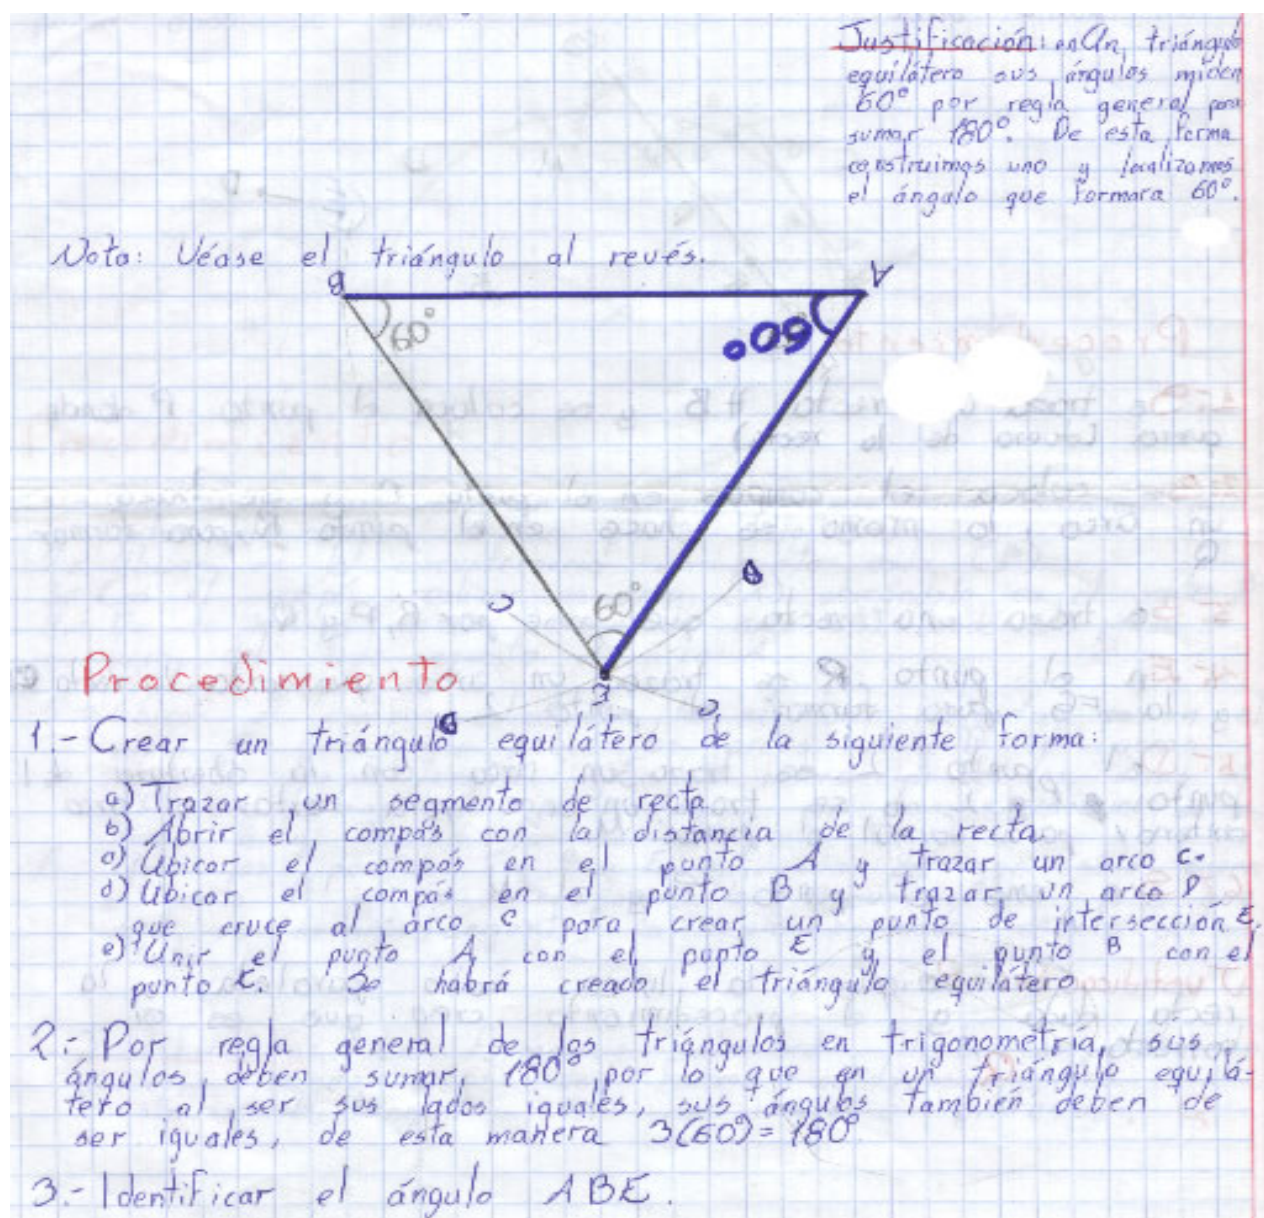 Justificación: en un triángulo
equilátero sus ángulos miden
60° por regla general para
sumar 180°. De esta forma
construimos uno y localizamos
el ángulo que formara 60°.
Nota: Véase el triángulo al revés.
B
A
60°
60°
60°
C
D
E
D
C
Procedimiento
1.- Crear un triángulo equilátero de la siguiente forma:
a) Trazar un segmento de recta
b) Abrir el compás con la distancia de la recta
c) Ubicar el compás en el punto A y trazar un arco C.
d) Ubicar el compás en el punto B y trazar un arco D
que cruce al arco C para crear un punto de intersección E.
e) Unir el punto A con el punto E y el punto B con el
punto E. Se habrá creado el triángulo equilátero
2.- Por regla general de los triángulos en trigonometría, sus
ángulos deben sumar 180°, por lo que en un triángulo equilá-
tero al ser sus lados iguales, sus ángulos también deben de
ser iguales, de esta manera 3(60°) = 180°
3.- Identificar el ángulo ABE.